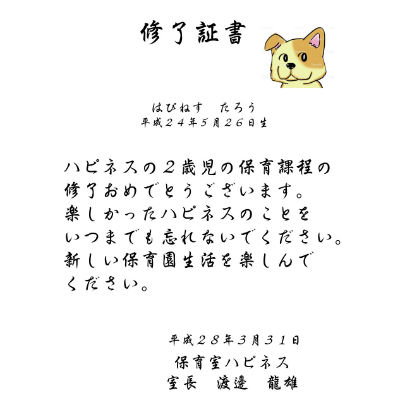 修了証書
はぴねす　たろう
平成２４年５月２６日生
ハピネスの２歳児の保育課程の
修了おめでとうございます。
楽しかったハピネスのことを
いつまでも忘れないでください。
新しい保育園生活を楽しんで
ください。
平成２８年３月３１日
保育室ハピネス
室長　渡邊　龍雄